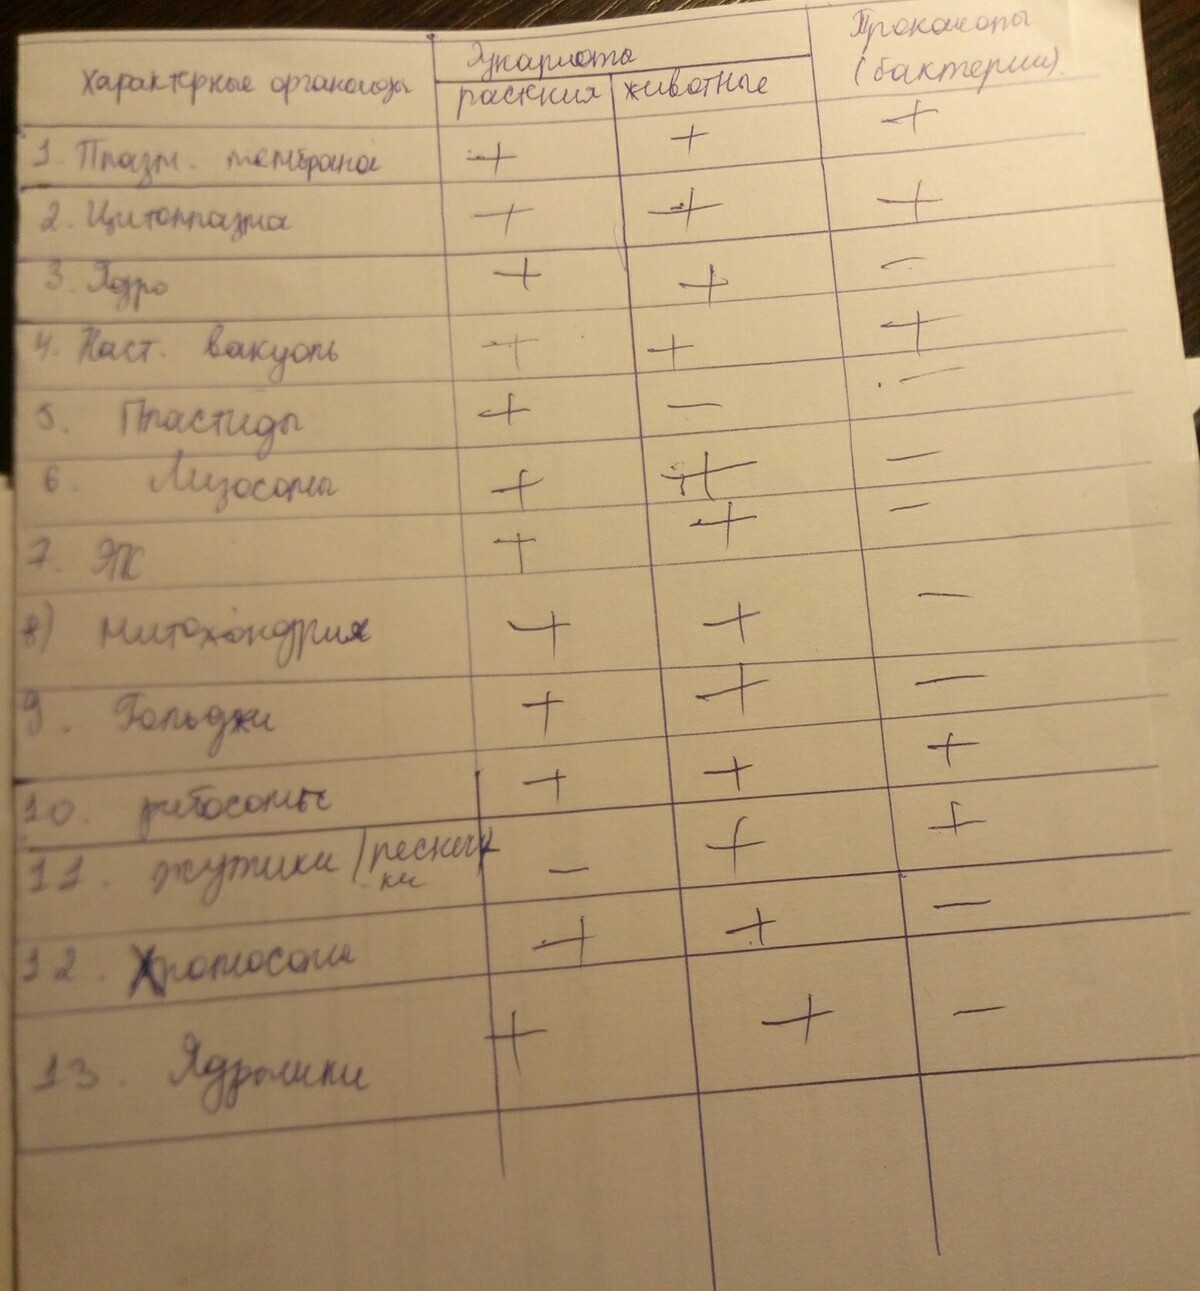 Характерные органоиды
Эукариота
Прокариоты
(бактерии)
растния животные
1. Плазм. мембрана + + +
2. Цитоплазма + + +
3. Ядро + + -
4. Наст. вакуоль + + +
5. Пластиды + - -
6. Лизосомы + + -
7. ЯК + + -
8) митохондрия + + -
9. Гольджи + + -
10. рибосомы + + +
11. жгутики/реснич - + +
ки
12. Хромосома + + -
13. Ядрышки + + -